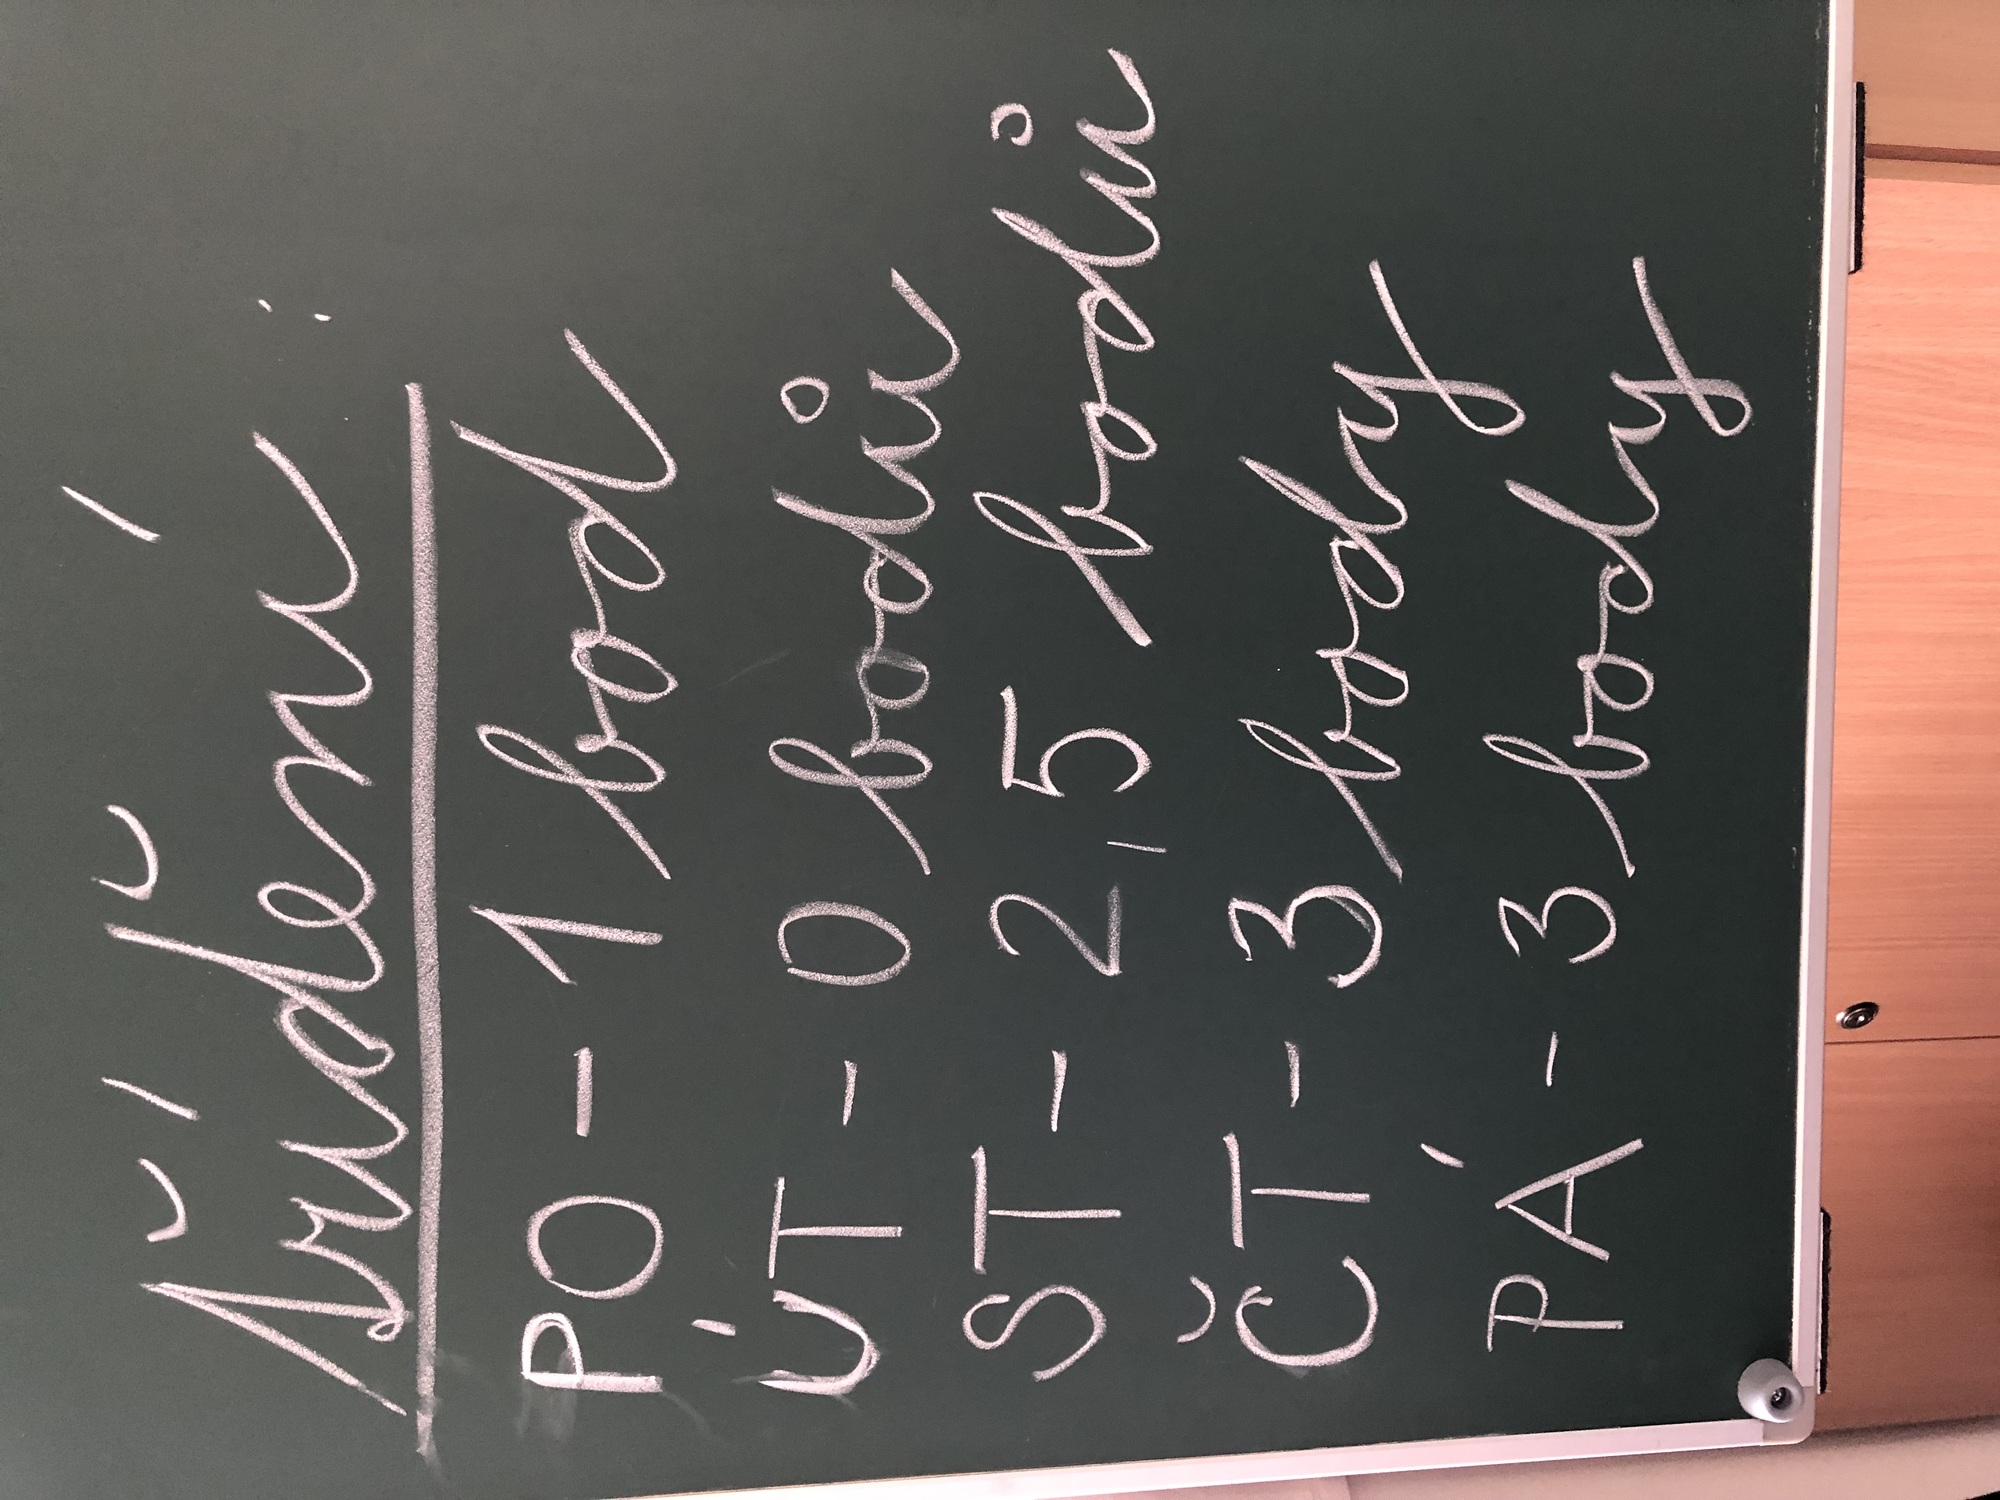 Šrúdění :
PO - 1 bod
ÚT - 0 bodů
ST - 2,5 bodů
ČT - 3 body
PÁ - 3 body